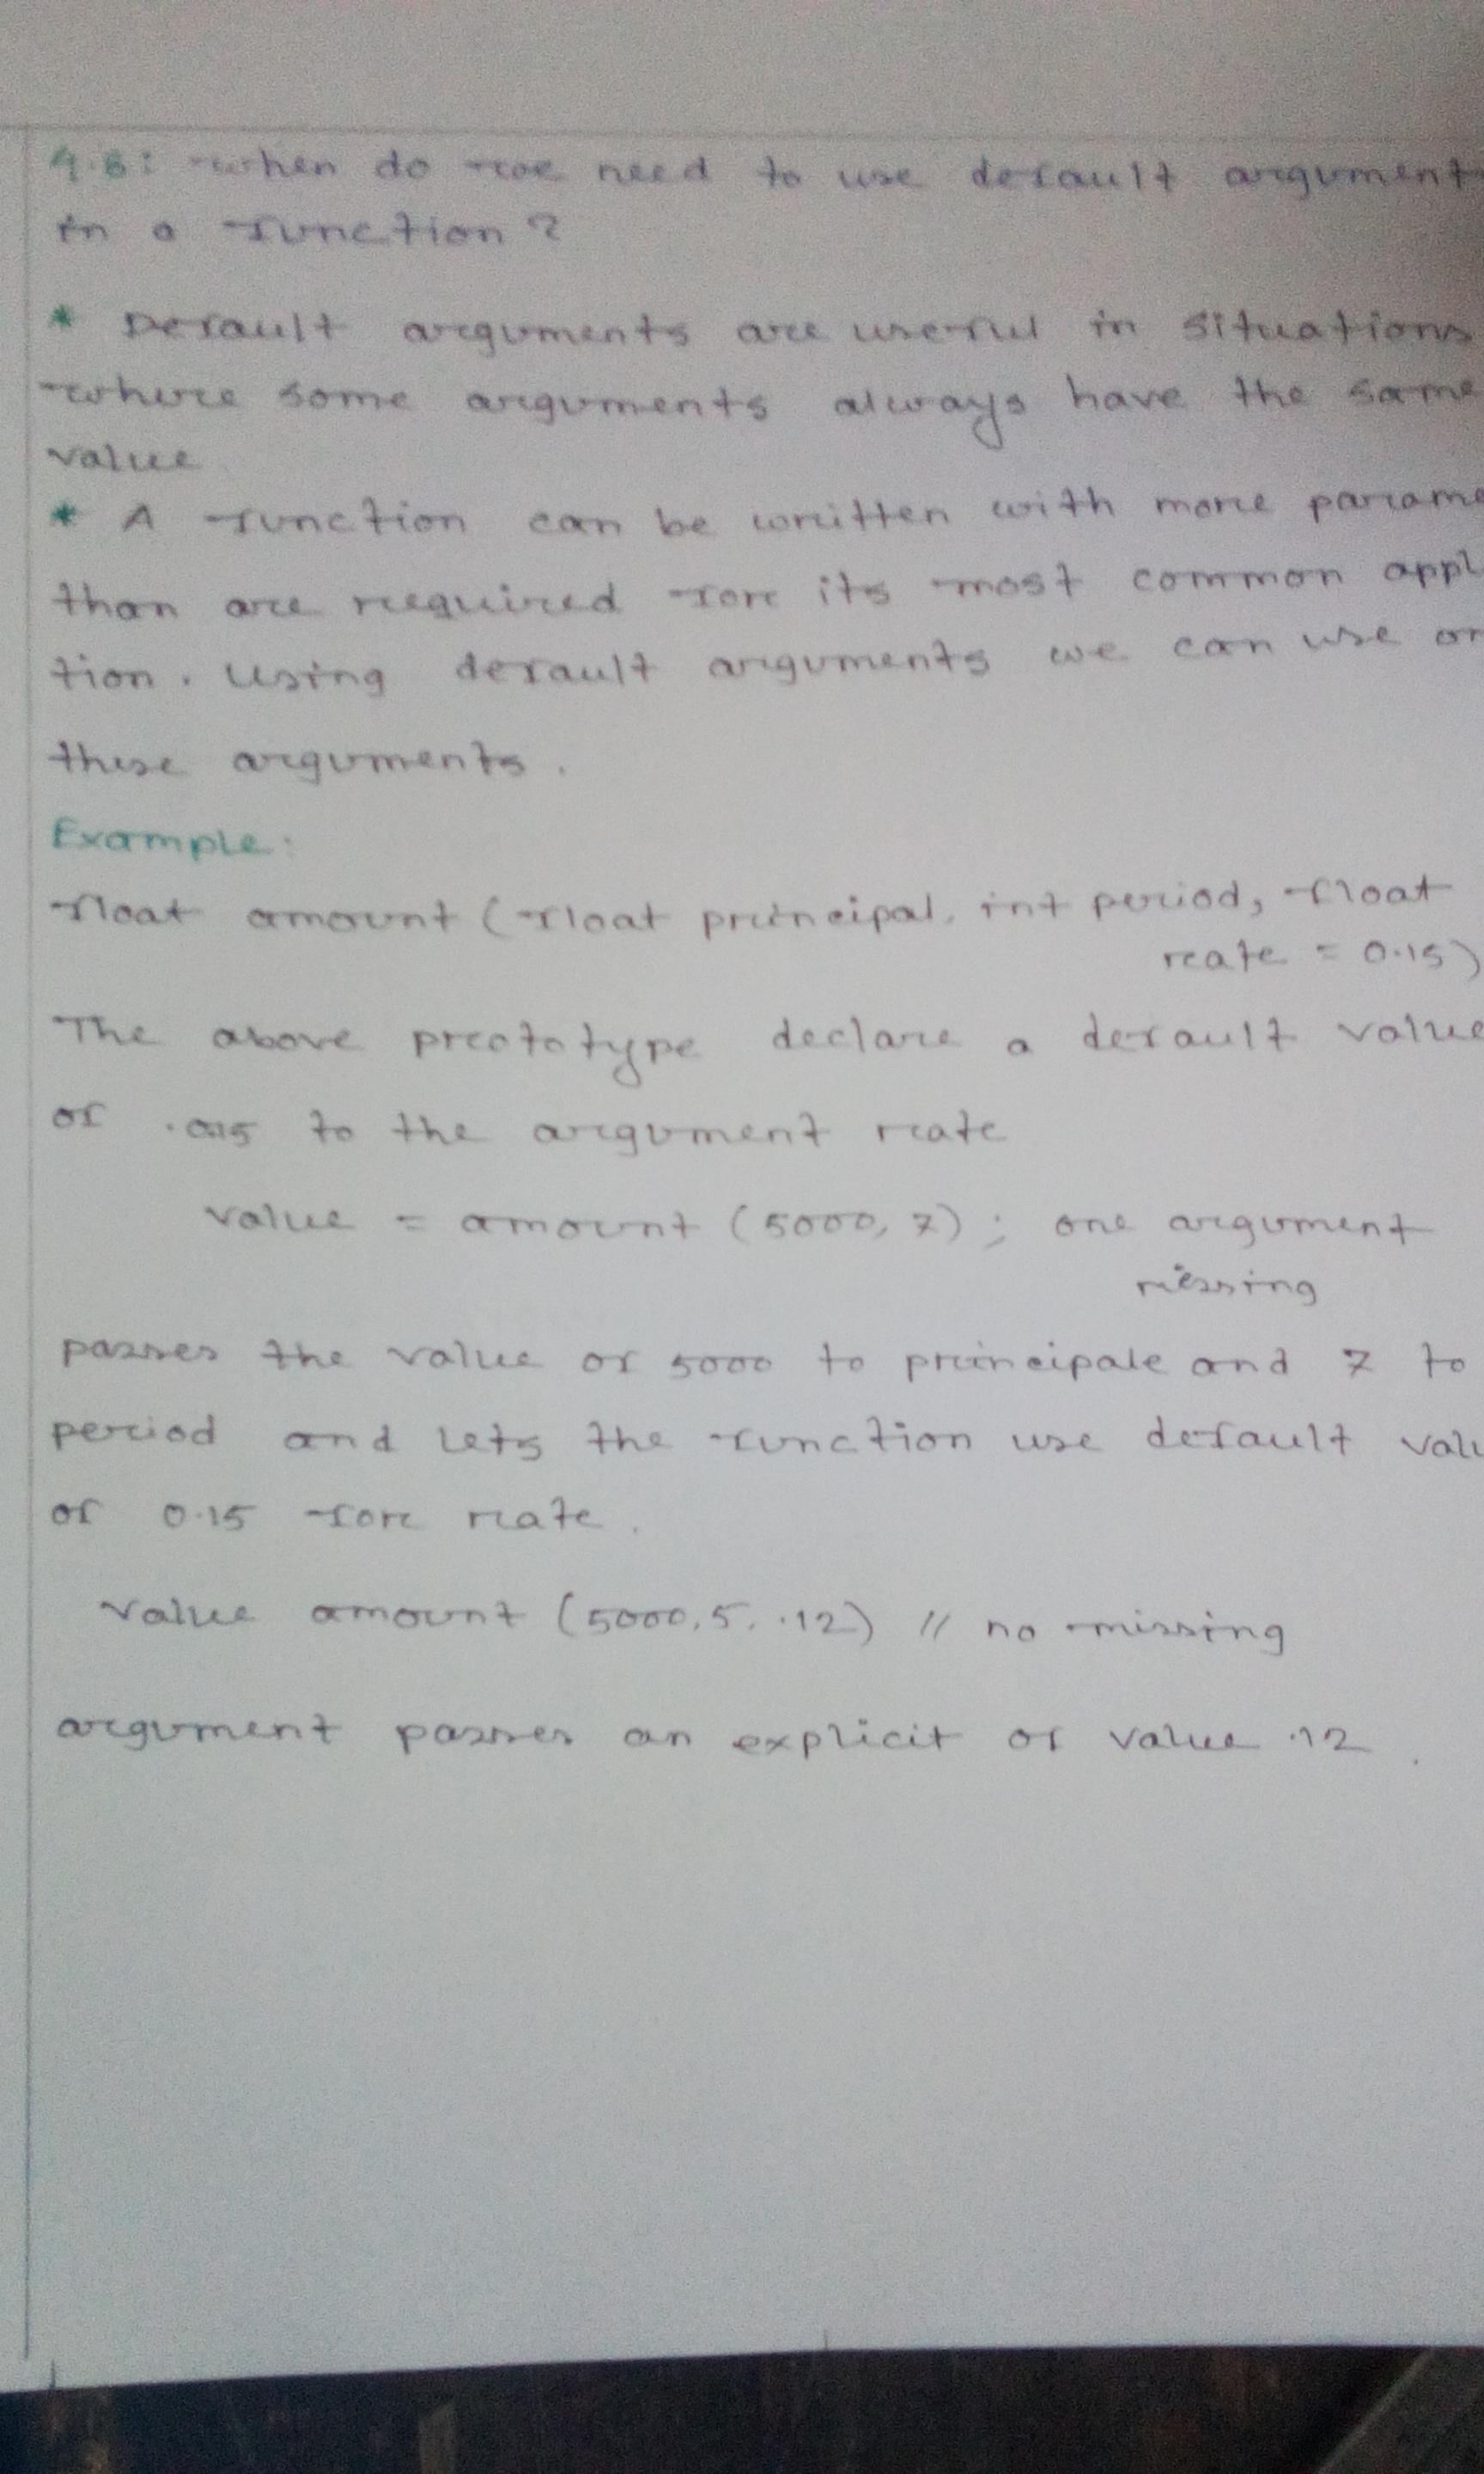 4.8: when do we need to use default argument
in a function?
* Default arguments are useful in situations
where some arguments always have the same
value.
* A function can be written with more parame
than are required for its most common appl
tion. Using default arguments we can use on
these arguments.
Example:
float amount (float principal, int period, float
rate = 0.15)
The above prototype declare a default value
of to the argument rate
value = amount (5000, 7); one argument
missing
passes the value of 5000 to principale and 7 to
period and lets the function use default valu
of 0.15 for rate.
value amount (5000, 5, .12) // no missing
argument passes an explicit of value .12.